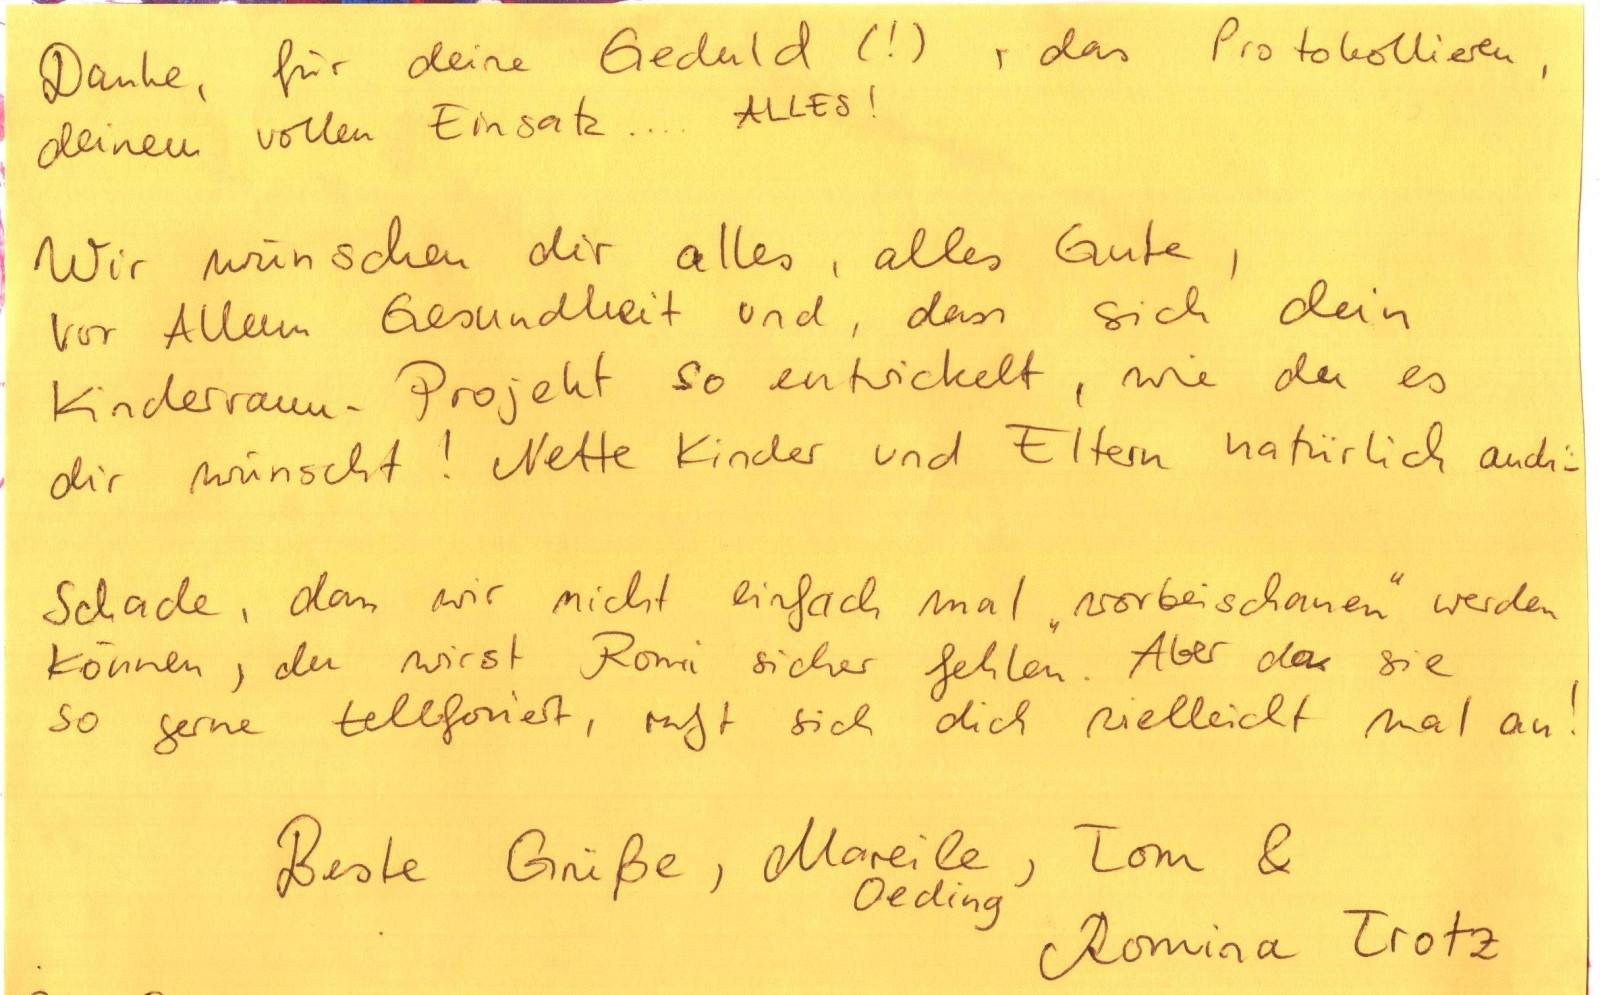 Danke, für deine Geduld (!), das Protokollieren,
deinem vollen Einsatz.... ALLES!
Wir wünschen dir alles, alles Gute,
vor Allem Gesundheit und, dass sich dein
Kinderraum-Projekt so entwickelt, wie du es
dir wünscht! Nette Kinder und Eltern natürlich auch :-
Schade, dass wir nicht einfach mal „vorbeischauen“ werden
können, du wirst Romi sicher fehlen. Aber da sie
so gerne telefoniert, ruft sich dich vielleicht mal an!
Beste Grüße, Mareile, Tom &
Oeding
Romina Trotz